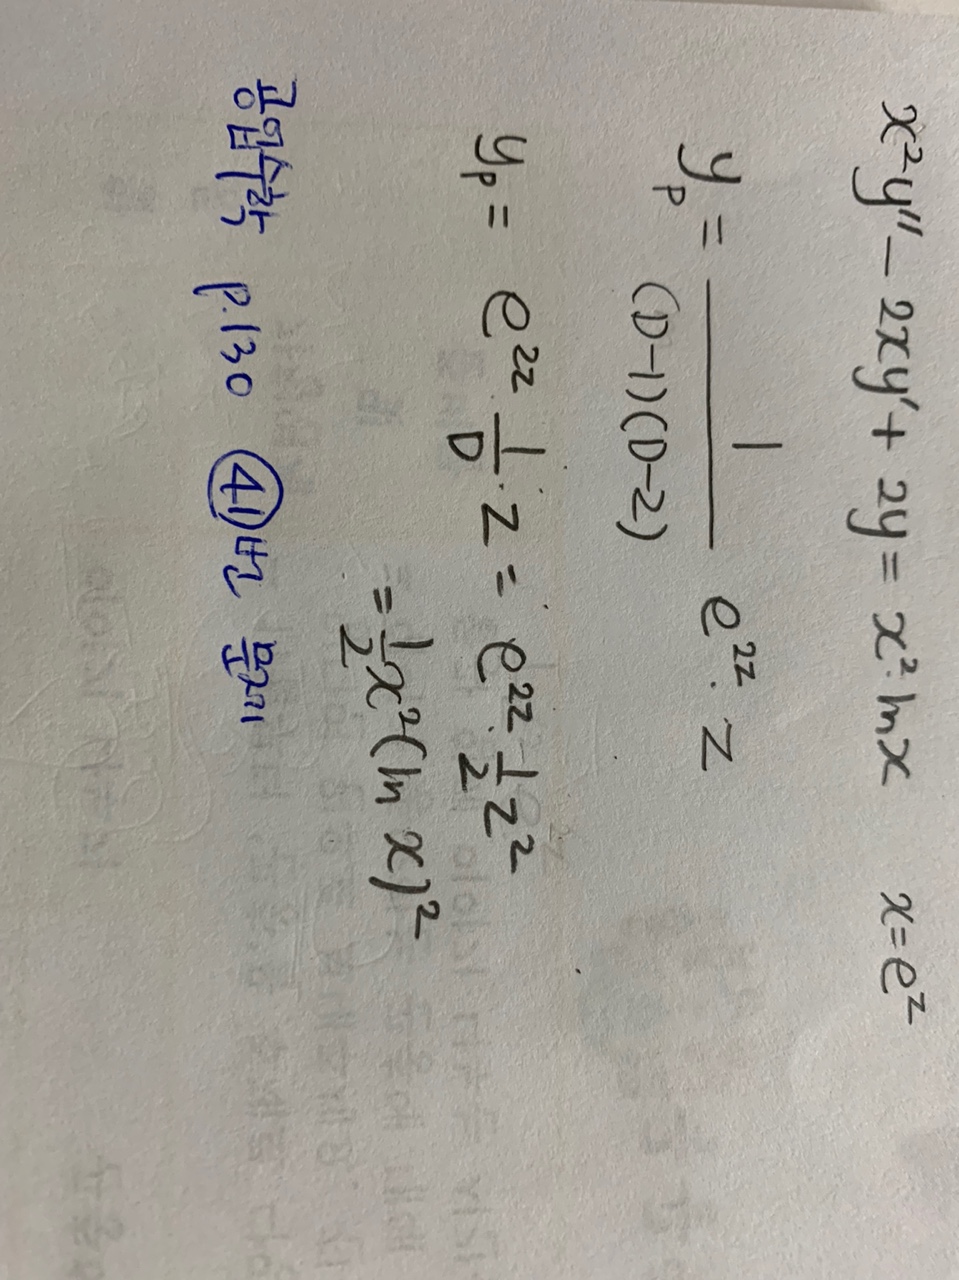 x²y″ - 2xy′ + 2y = x²·lnx   x = e^z
y_p = 1/((D-1)(D-2)) e^{2z}·z
y_p = e^{2z}·1/D·z = e^{2z}·1/2 z²
= 1/2 x²(ln x)²
공업수학 p.130 ㊶번 문제